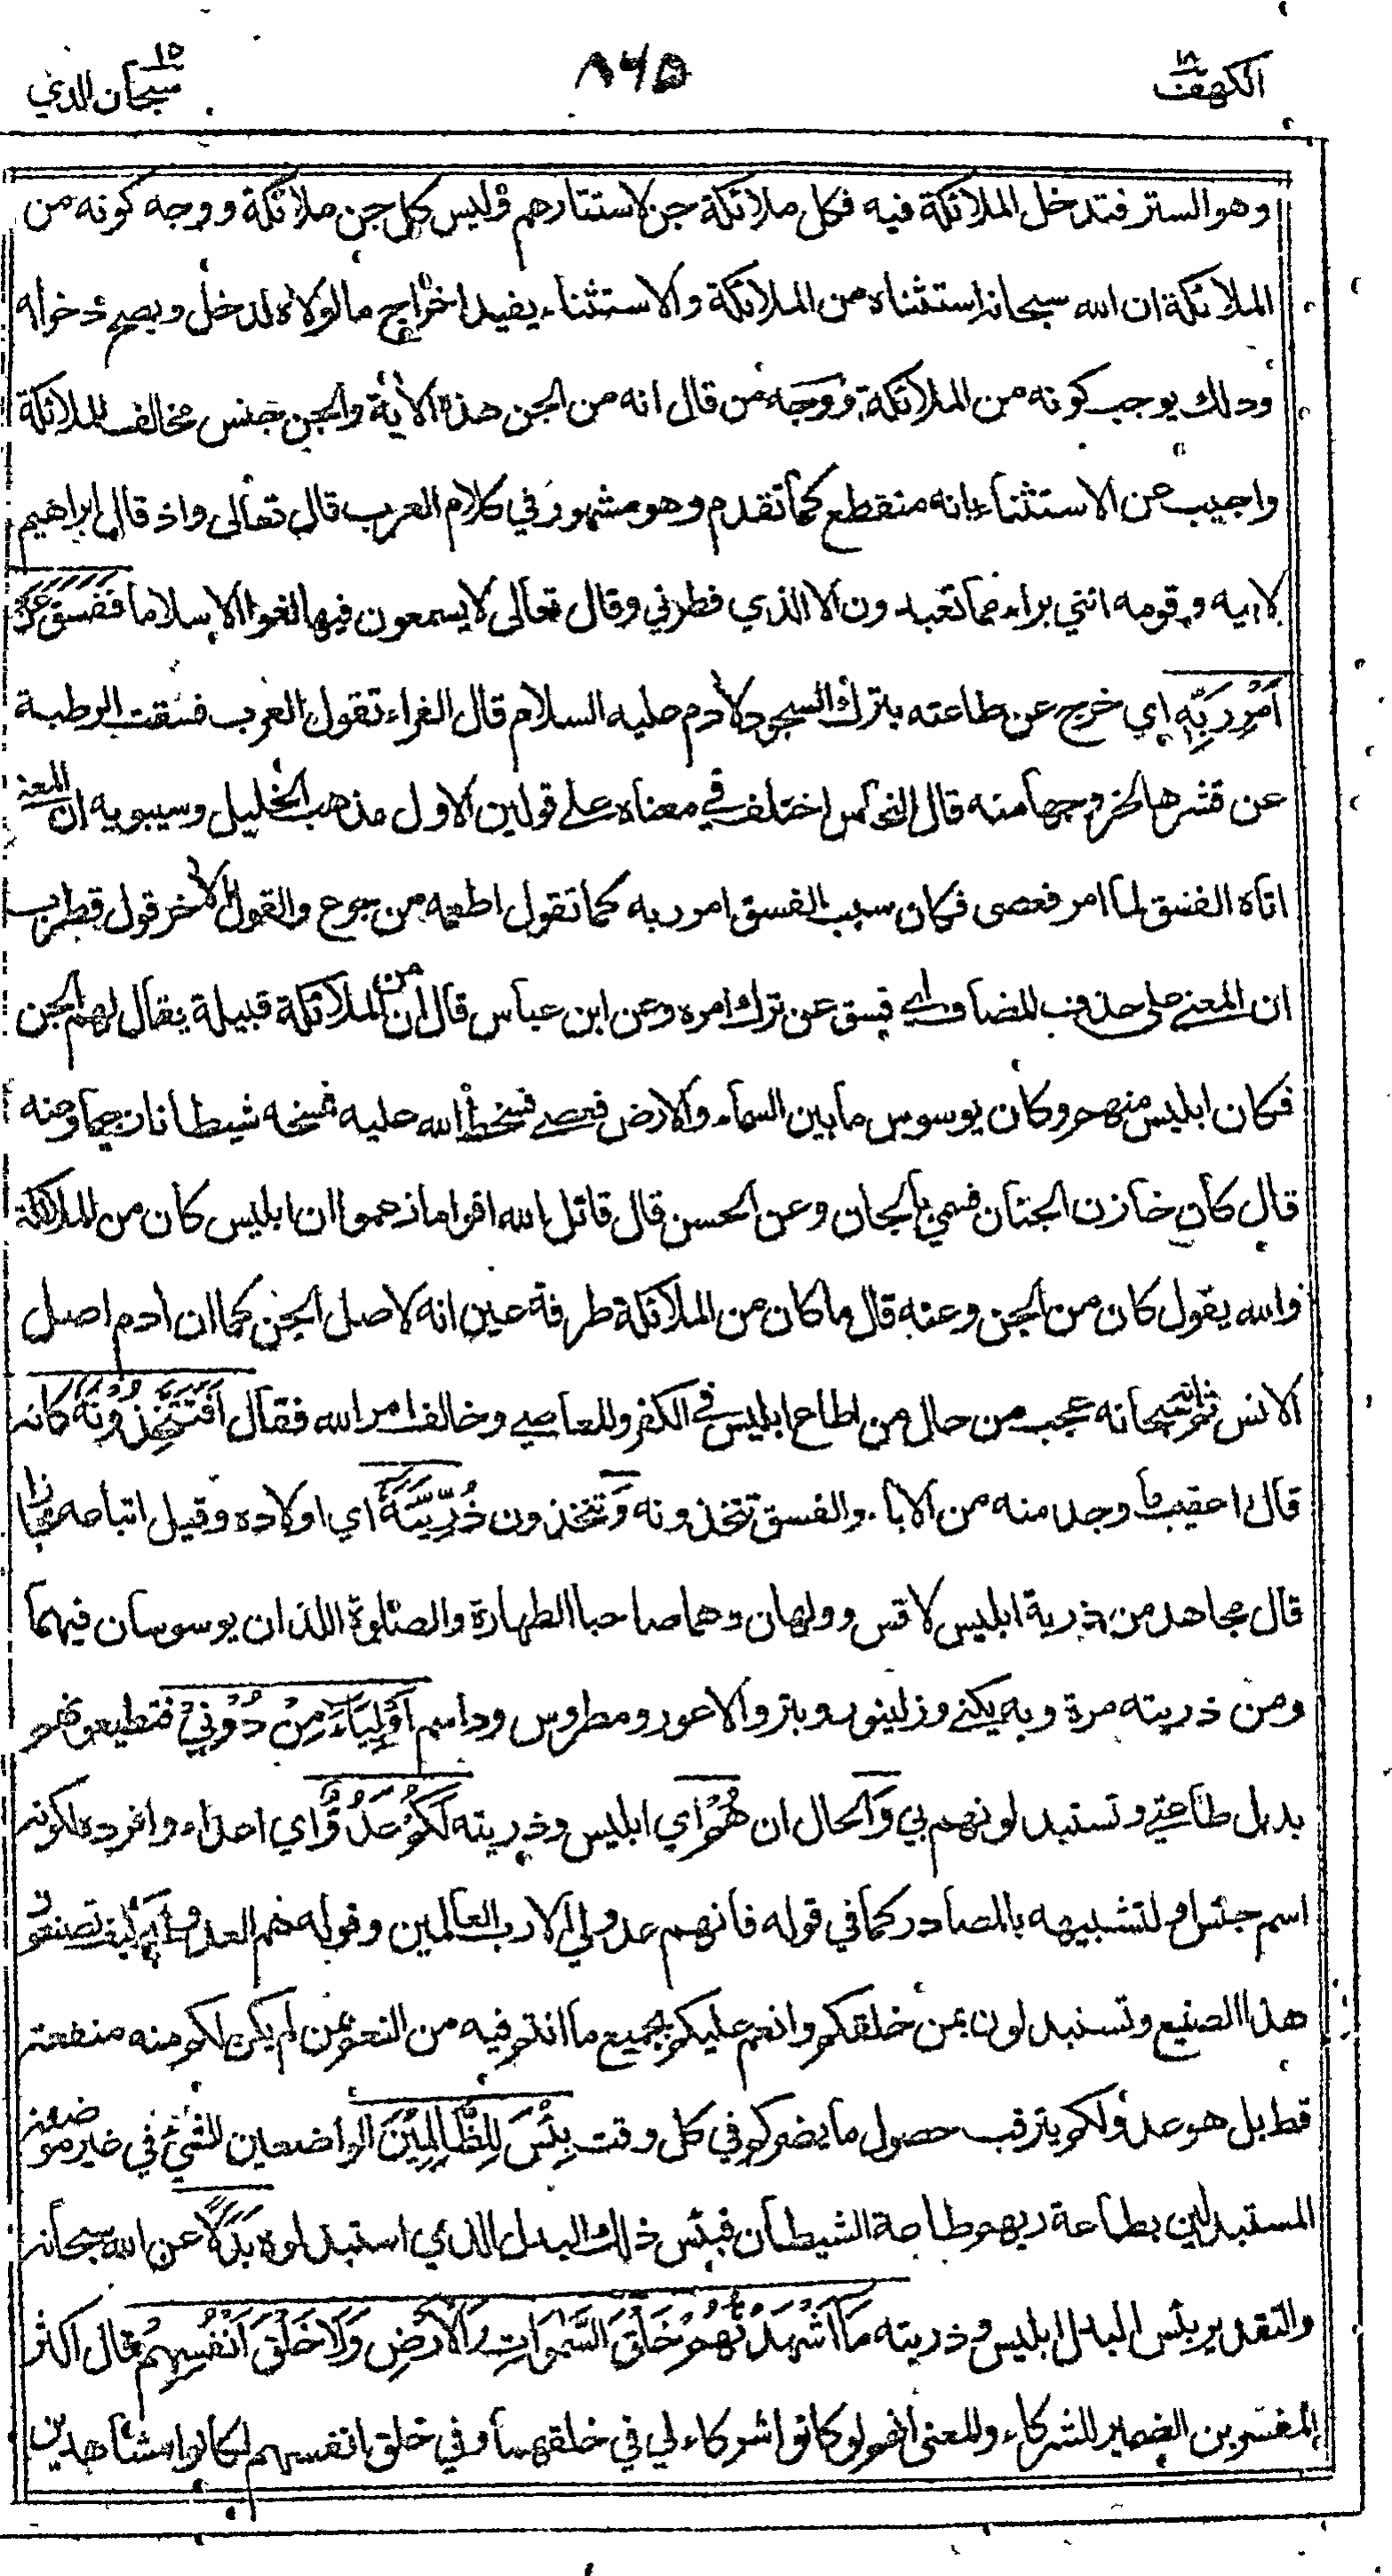 الكهف ١٨
٨٦٥
سبحان الذي ١٥
وهو الستر فتدخل الملائكة فيه فكل ملائكة جن لاستتارهم وليس كل جن ملائكة ووجه كونه من
الملائكة ان الله سبحانه استثناه من الملائكة والاستثناء يفيد اخراج ما لولاه لدخل ويصح دخوله
وذلك يوجب كونه من الملائكة ووجه من قال انه من الجن هذه الآية والجن جنس مخالف للملائكة
واجيب عن الاستثناء بانه منقطع كما تقدم وهو مشهور في كلام العرب قال تعالى واذ قال ابراهيم
لابيه وقومه انني براء مما تعبدون الا الذي فطرني وقال تعالى لا يسمعون فيها لغوا الا سلاما فَفَسَقَ عَنْ
اَمْرِ رَبِّهٖ اي خرج عن طاعته بترك السجود لآدم عليه السلام قال الفراء تقول العرب فسقت الرطبة
عن قشرها لخروجها منه قال النحاس اختلف في معناه على قولين الاول مذهب الخليل وسيبويه ان المعنى
اتاه الفسق لما امر فعصى فكان سبب الفسق امر ربه كما تقول اطعمه من جوع والقول الآخر قول قطرب
ان المعنى على حذف المضاف اي فسق عن ترك امره وعن ابن عباس قال ان من الملائكة قبيلة يقال لهم الجن
فكان ابليس منهم وكان يوسوس ما بين السماء والارض فعصى فسخط الله عليه فمسخه شيطانا رجيما وعنه
قال كان خازن الجنان فسمي بالجان وعن الحسن قال قاتل الله اقواما زعموا ان ابليس كان من الملائكة
والله يقول كان من الجن وعنه قال ما كان من الملائكة طرفة عين انه لاصل الجن كما ان آدم اصل
الانس ثم انه سبحانه عجب من حال من اطاع ابليس في الكفر والمعاصي وخالف امر الله فقال اَفَتَتَّخِذُوْنَهٗ كانه
قال اعقيب ما وجد منه من الاباء والفسق تتخذونه وَ تتخذون ذُرِّيَّتَهٗ اي اولاده وقيل اتباعه مجازا
قال مجاهد من ذرية ابليس لاقس وولهان وهما صاحبا الطهارة والصلوة اللذان يوسوسان فيهما
ومن ذريته مرة وبه يكنى وزلينور وبتر والاعور ومطروس وداسم اَوْلِيَآءَ مِنْ دُوْنِيْ فتطيعونهم
بدل طاعتي وتستبدلونهم بي وَ الحال ان هُمْ اي ابليس وذريته لَكُمْ عَدُوٌّ اي اعداء وافرده لكونه
اسم جنس او لتشبيهه بالمصادر كما في قوله فانهم عدو لي الا رب العالمين وقوله هم العدو اي كيف تصنعون
هذا الصنيع وتستبدلون بمن خلقكم وانعم عليكم بجميع ما انتم فيه من النعم بمن لم يكن لكم منه منفعة
قط بل هو عدو لكم يترقب حصول ما يضركم في كل وقت بِئْسَ لِلظَّالِمِيْنَ الواضعين للشيء في غير موضعه
المستبدلين بطاعة ربهم طاعة الشيطان فبئس ذلك البدل الذي استبدلوه بَدَلًا عن الله سبحانه
والتقدير بئس البدل ابليس وذريته مَا اَشْهَدْتُّهُمْ خَلْقَ السَّمٰوَاتِ وَالْاَرْضِ وَلَا خَلْقَ اَنْفُسِهِمْ قال اكثر
المفسرين الضمير للشركاء والمعنى انهم لو كانوا شركاء لي في خلقهما وفي خلق انفسهم لكانوا مشاهدين